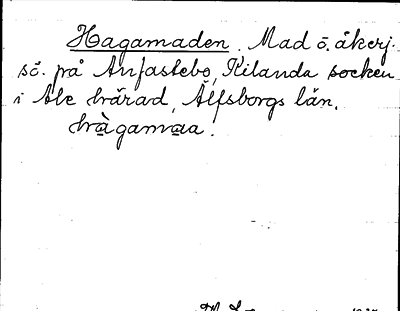 Hagamaden. Mad o. åkerj.
sö. på Anfastebo, Kilanda socken
i Ale härad, Älfsborgs län.
hàgamaa.